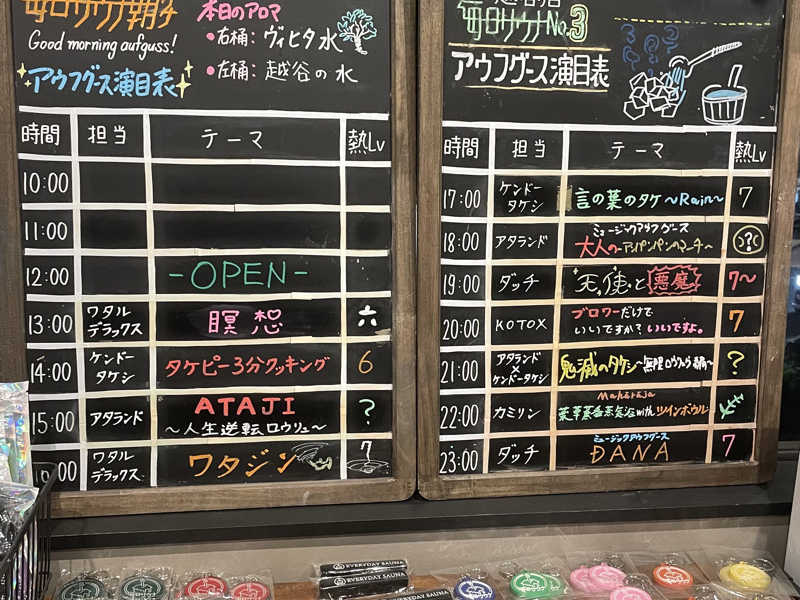 毎日サウナ朝チ
Good morning aufguss!
アウフグース演目表
本日のアロマ
•右桶：ヴィヒタ水
•左桶：越谷の水
時間 担当 テーマ 熱Lv
10:00
11:00
12:00 -OPEN-
13:00 ワタルデラックス 瞑想 六
14:00 ケンドータケシ タケピー3分クッキング 6
15:00 アタランド ATAJI ～人生逆転ロウリュ～ ?
:00 ワタルデラックス ワタジン 7
毎日サウナNo.3
アウフグース演目表
時間 担当 テーマ 熱Lv
17:00 ケンドータケシ 言の葉のタケ～Rain～ 7
18:00 アタランド ミュージックアウフグース 大人のアンパンパンのマーチ～ ?
19:00 ダッチ 天使と悪魔 7～
20:00 KOTOX ブロワーだけでいいですか？いいですよ。 7
21:00 アタランド×ケンドータケシ 鬼滅のタケシ～無限ロウリュウ編～ ?
22:00 カミリン Maharaja 薬草蒸 with ツインボウル
23:00 ダッチ ミュージックアウフグース DANA 7
EVERYDAY SAUNA
EVERYDAY SAUNA